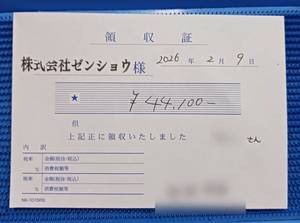 領収証
株式会社ゼンショウ様 2026年2月9日
★ ¥44,100-
但
上記正に領収いたしました
さん
内訳
税率 金額(税抜・税込)
% 消費税額等
税率 金額(税抜・税込)
% 消費税額等